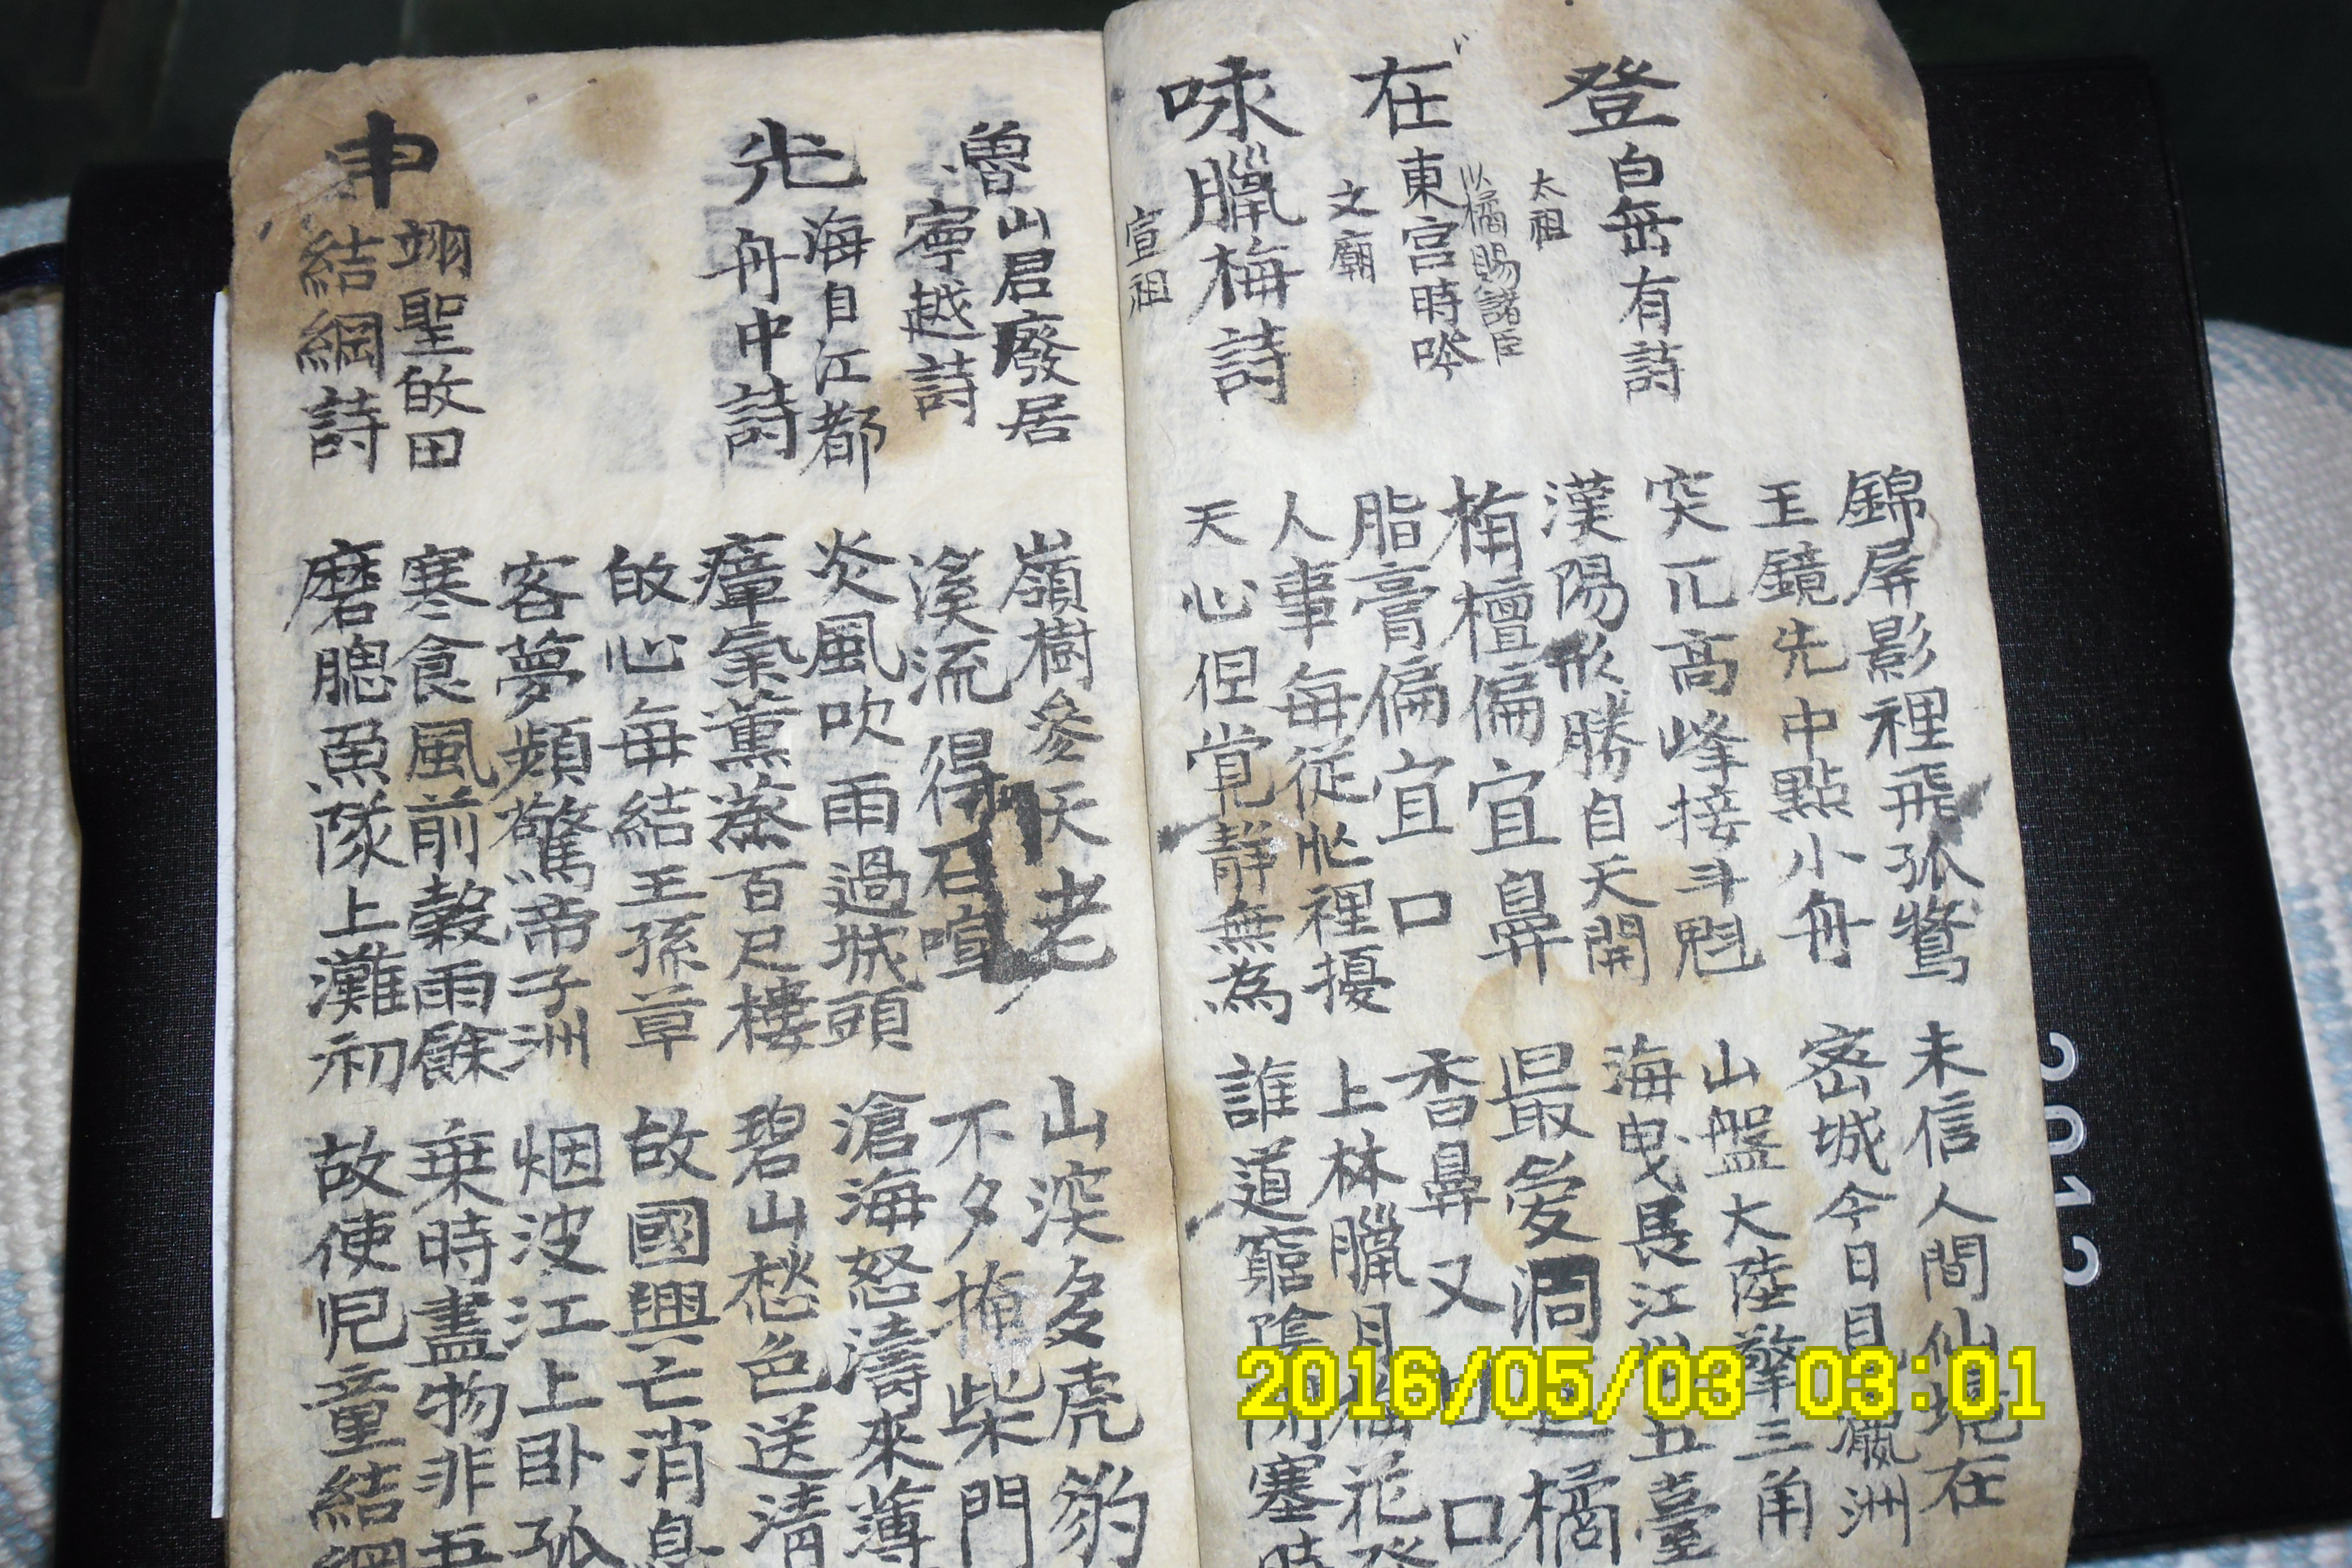 錦屏影裡飛孤鶩 未信人間仙境在
玉鏡光中點小舟 密城今日見瀛洲
登白岳有詩
太祖
突兀高峰接斗魁 山盤大陸擎三角
漢陽形勝自天開 海曳長江出五臺
以橘賜諸臣
在東宮時吟
文廟
栴檀偏宜鼻 最愛洞庭橘
脂膏偏宜口 香鼻又甘口
咏臘梅詩
宣祖
人事每從忙裡擾 上林臘月梅花發
天心但覺靜無為 誰道窮陰閉塞時
魯山君廢居
寧越詩
嶺樹參天老 山深多虎豹
溪流得石喧 不夕掩柴門
光海自江都
舟中詩
炎風吹雨過城頭 滄海怒濤來薄
瘴氣薰蒸百尺樓 碧山愁色送清
皈心每結王孫草 故國興亡消息
客夢頻驚帝子洲 烟波江上卧孤
申翊聖皈田
結網詩
寒食風前穀雨餘 乗時盡物非吾
磨腮魚隊上灘初 故使兒童結網
2012
2016/05/03 03:01